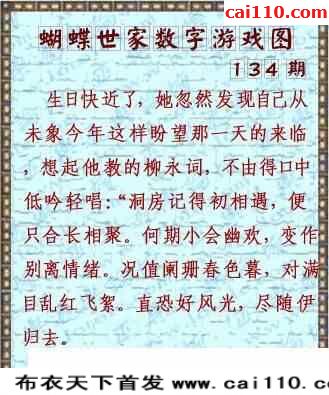 cai110.com
蝴蝶世家数字游戏图
134期
生日快近了，她忽然发现自己从
未象今年这样盼望那一天的来临
，想起他教的柳永词，不由得口中
低吟轻唱：“洞房记得初相遇，便
只合长相聚。何期小会幽欢，变作
别离情绪。况值阑珊春色暮，对满
目乱红飞絮。直恐好风光，尽随伊
归去。
布衣天下首发 www.cai110.c